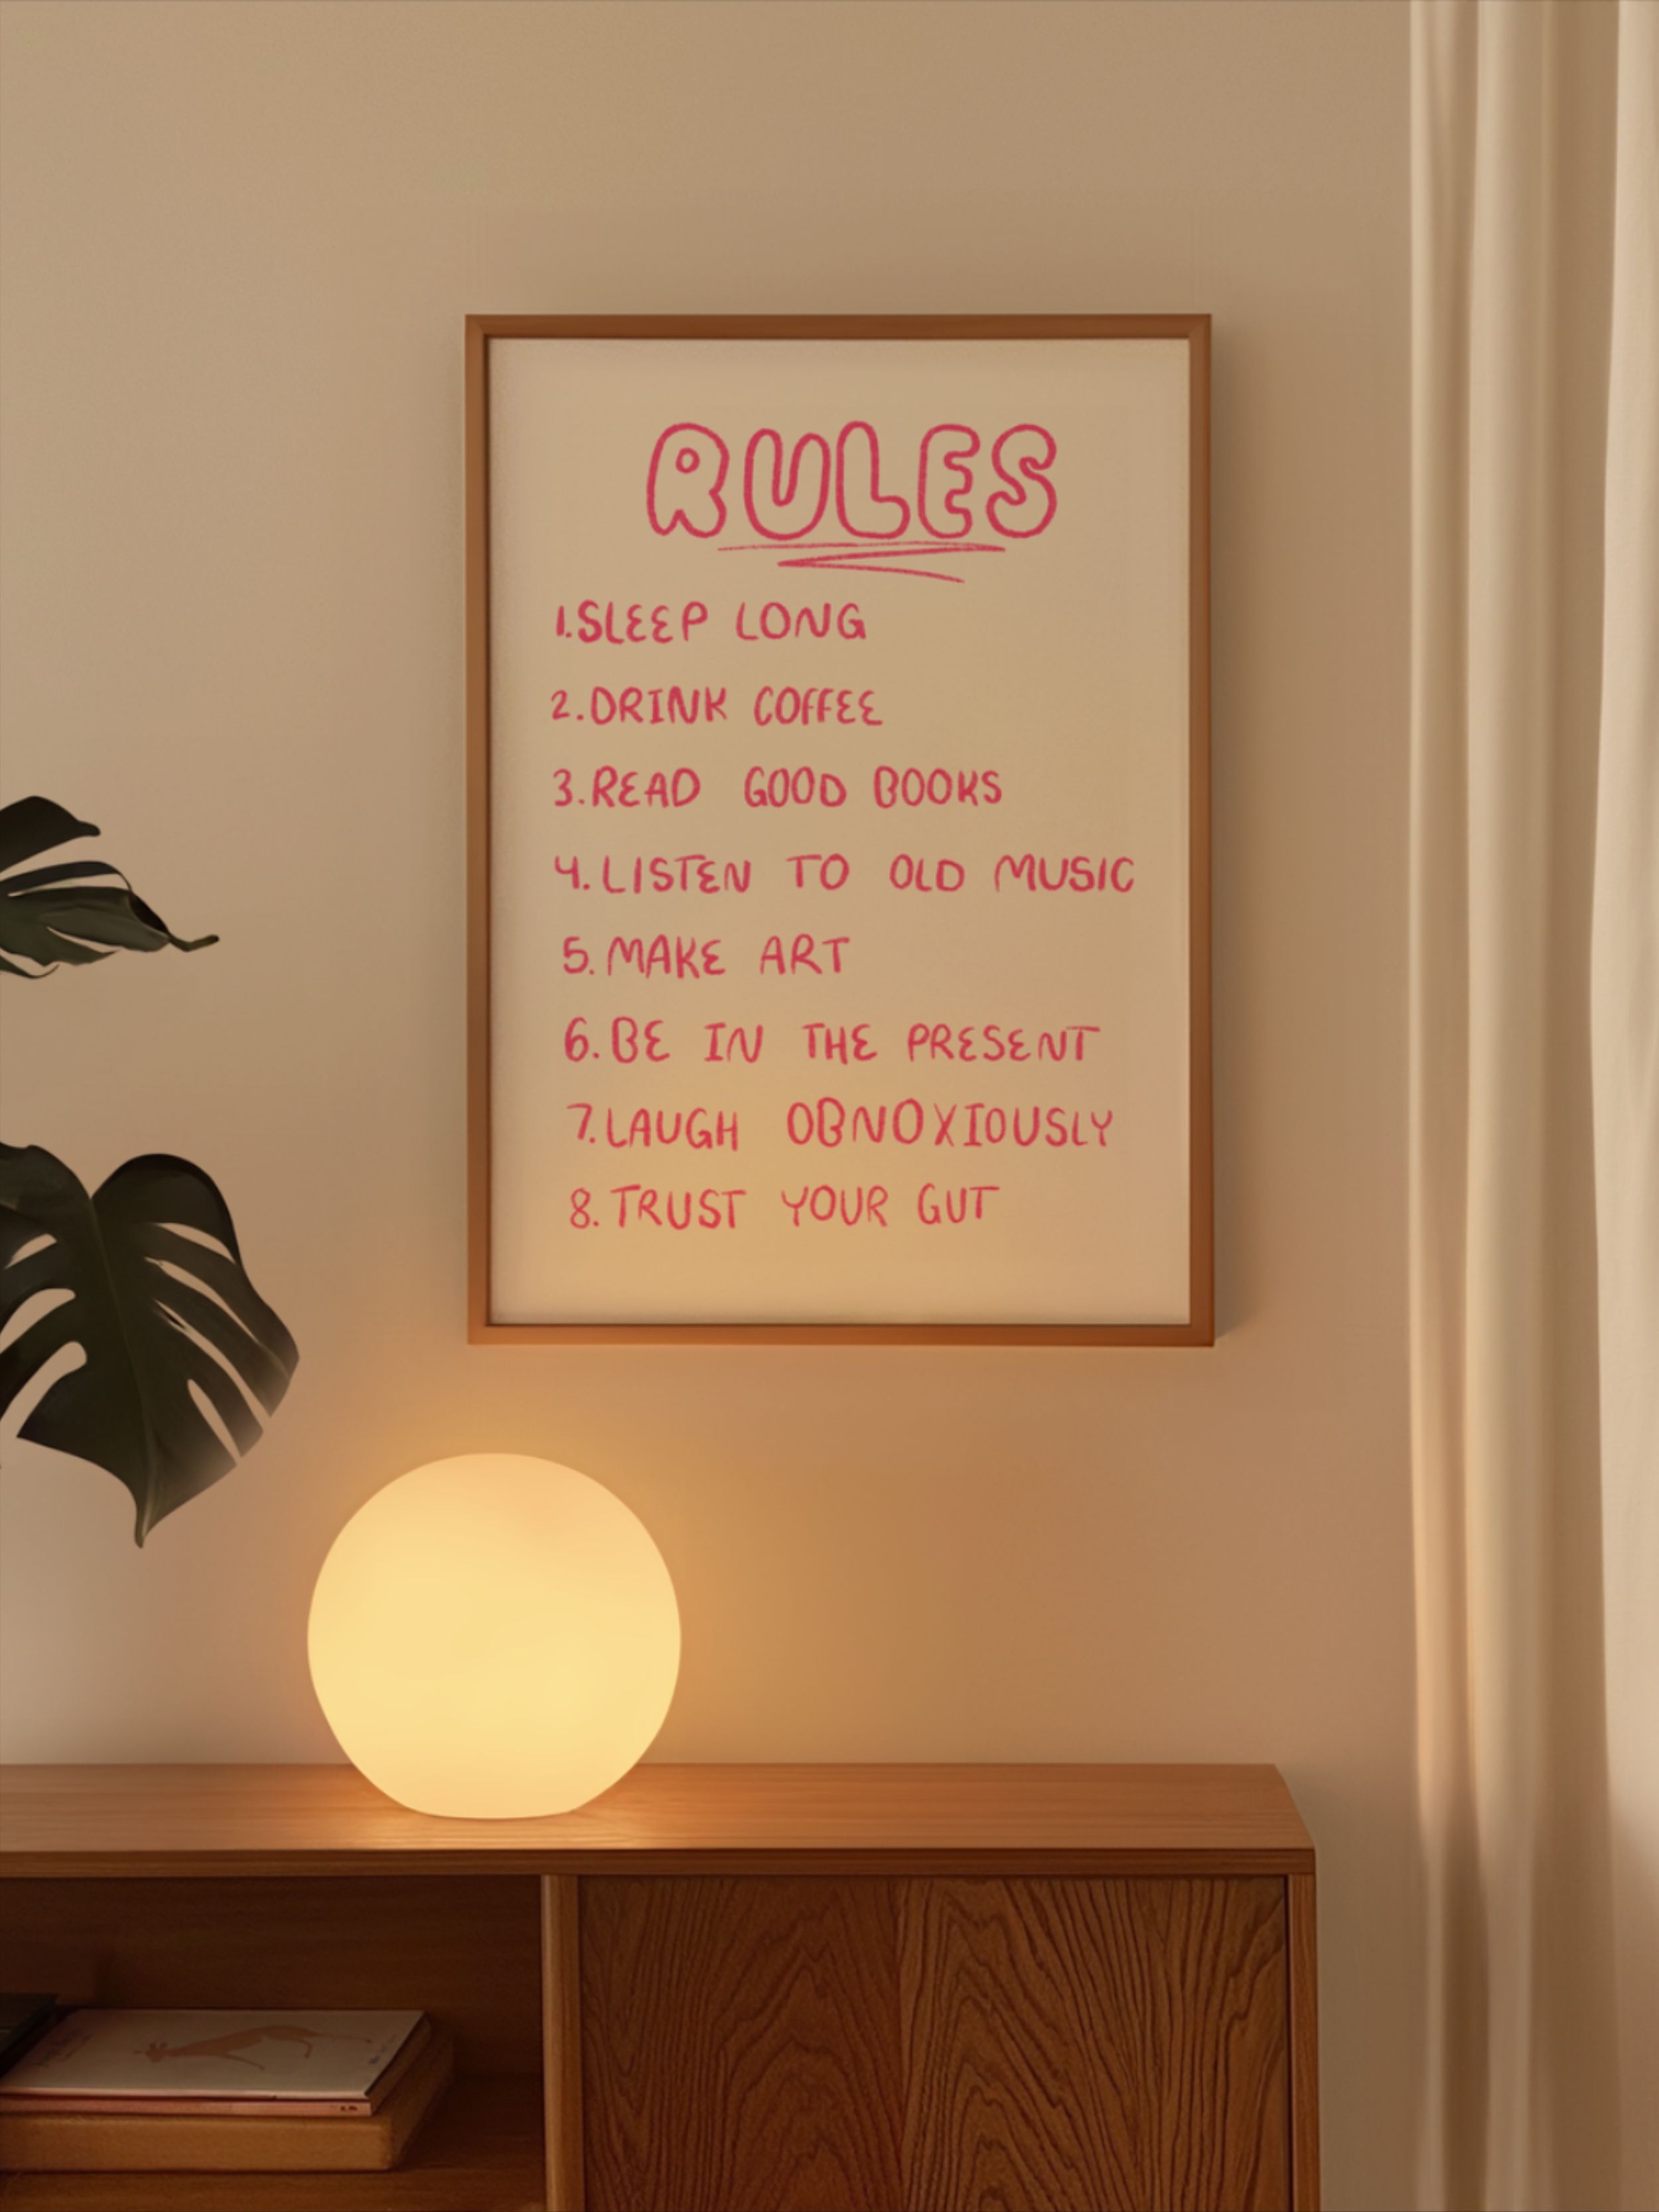 RULES
1. SLEEP LONG
2. DRINK COFFEE
3. READ GOOD BOOKS
4. LISTEN TO OLD MUSIC
5. MAKE ART
6. BE IN THE PRESENT
7. LAUGH OBNOXIOUSLY
8. TRUST YOUR GUT